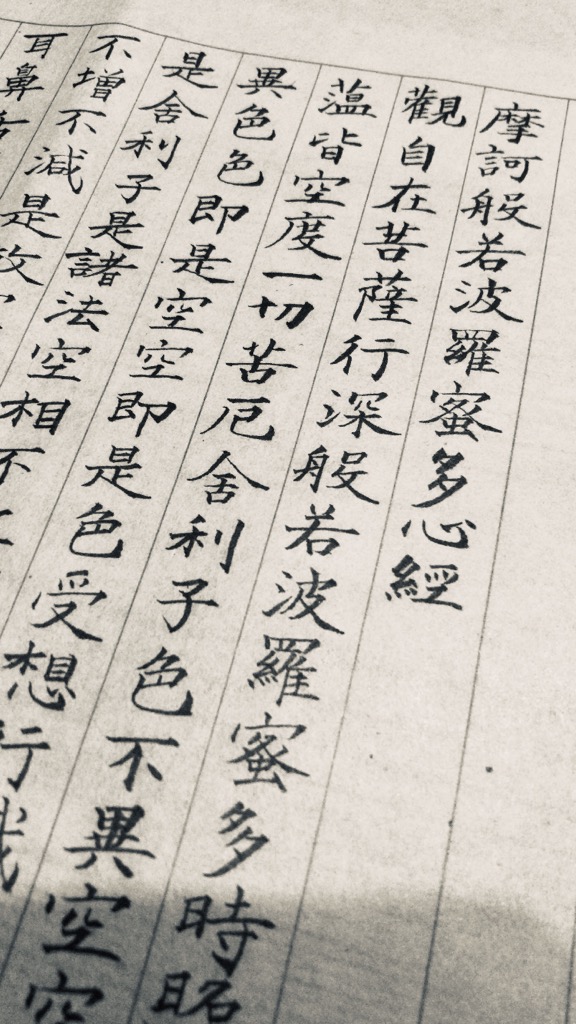 摩訶般若波羅蜜多心經
觀自在菩薩行深般若波羅蜜多時照
薀皆空度一切苦厄舍利子色不異空空
異色色即是空空即是色受想行
是舍利子是諸法空相不
不增不減是故
耳鼻舌